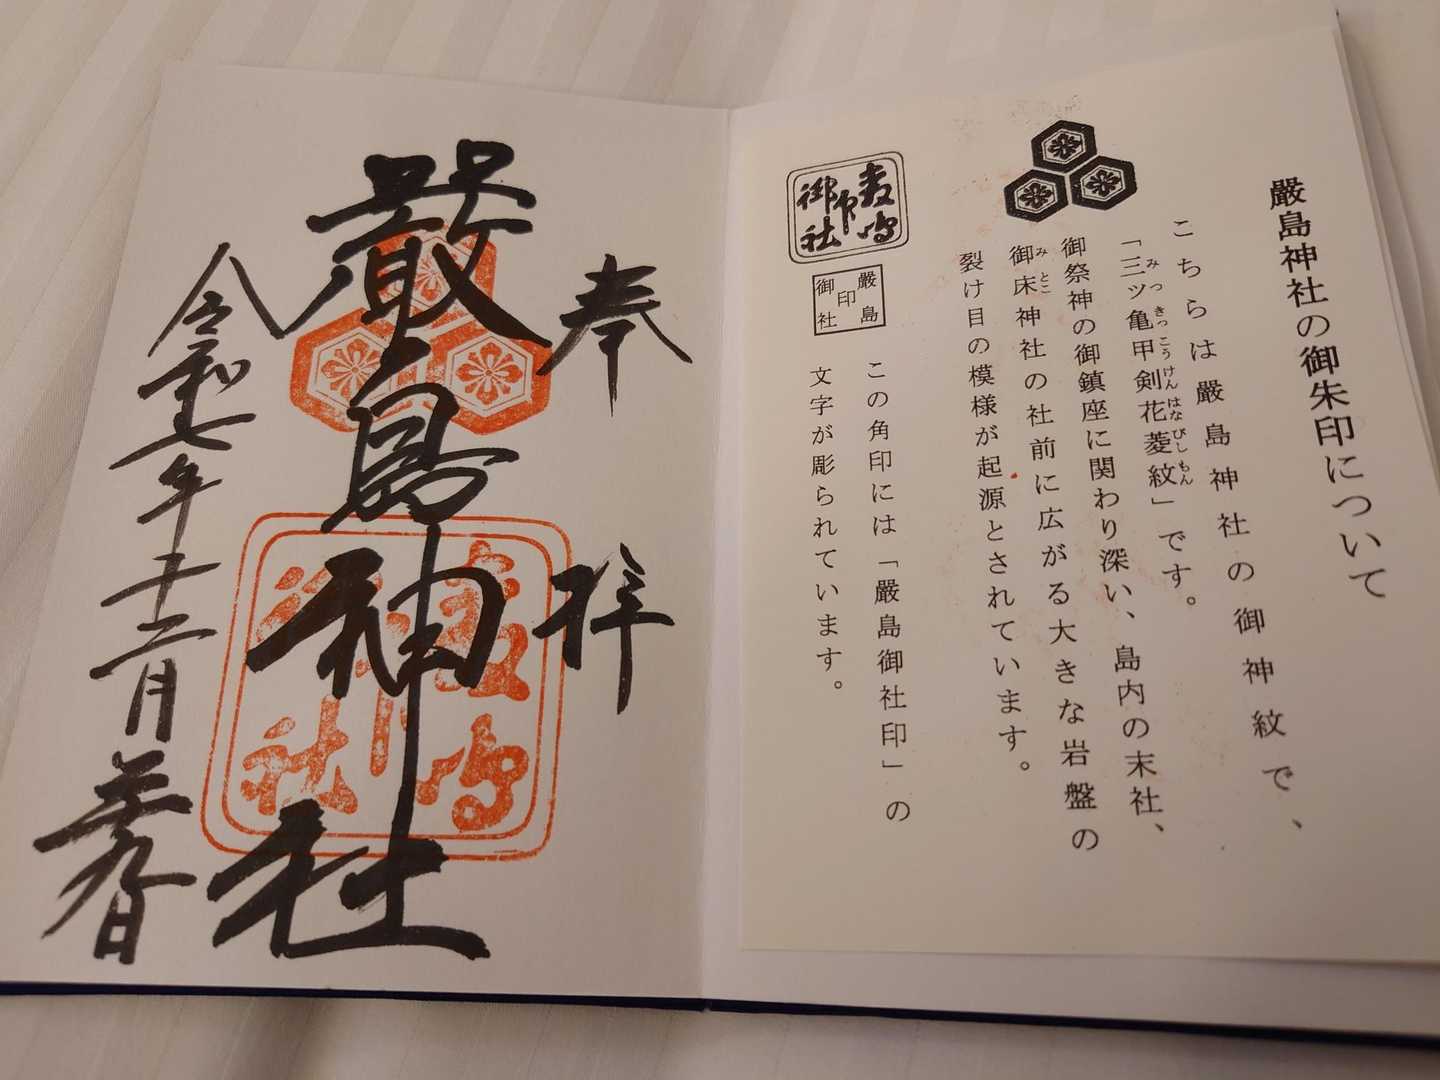 嚴島神社の御朱印について
こちらは嚴島神社の御神紋で、
「三ツ亀甲剣花菱紋」です。
みつきっこうけんはなびしもん
御祭神の御鎮座に関わり深い、島内の末社、
御床神社の社前に広がる大きな岩盤の
みとこ
裂け目の模様が起源とされています。
嚴島
印
御社
この角印には「嚴島御社印」の
文字が彫られています。
奉拝
嚴島神社
令和七年十二月廿九日